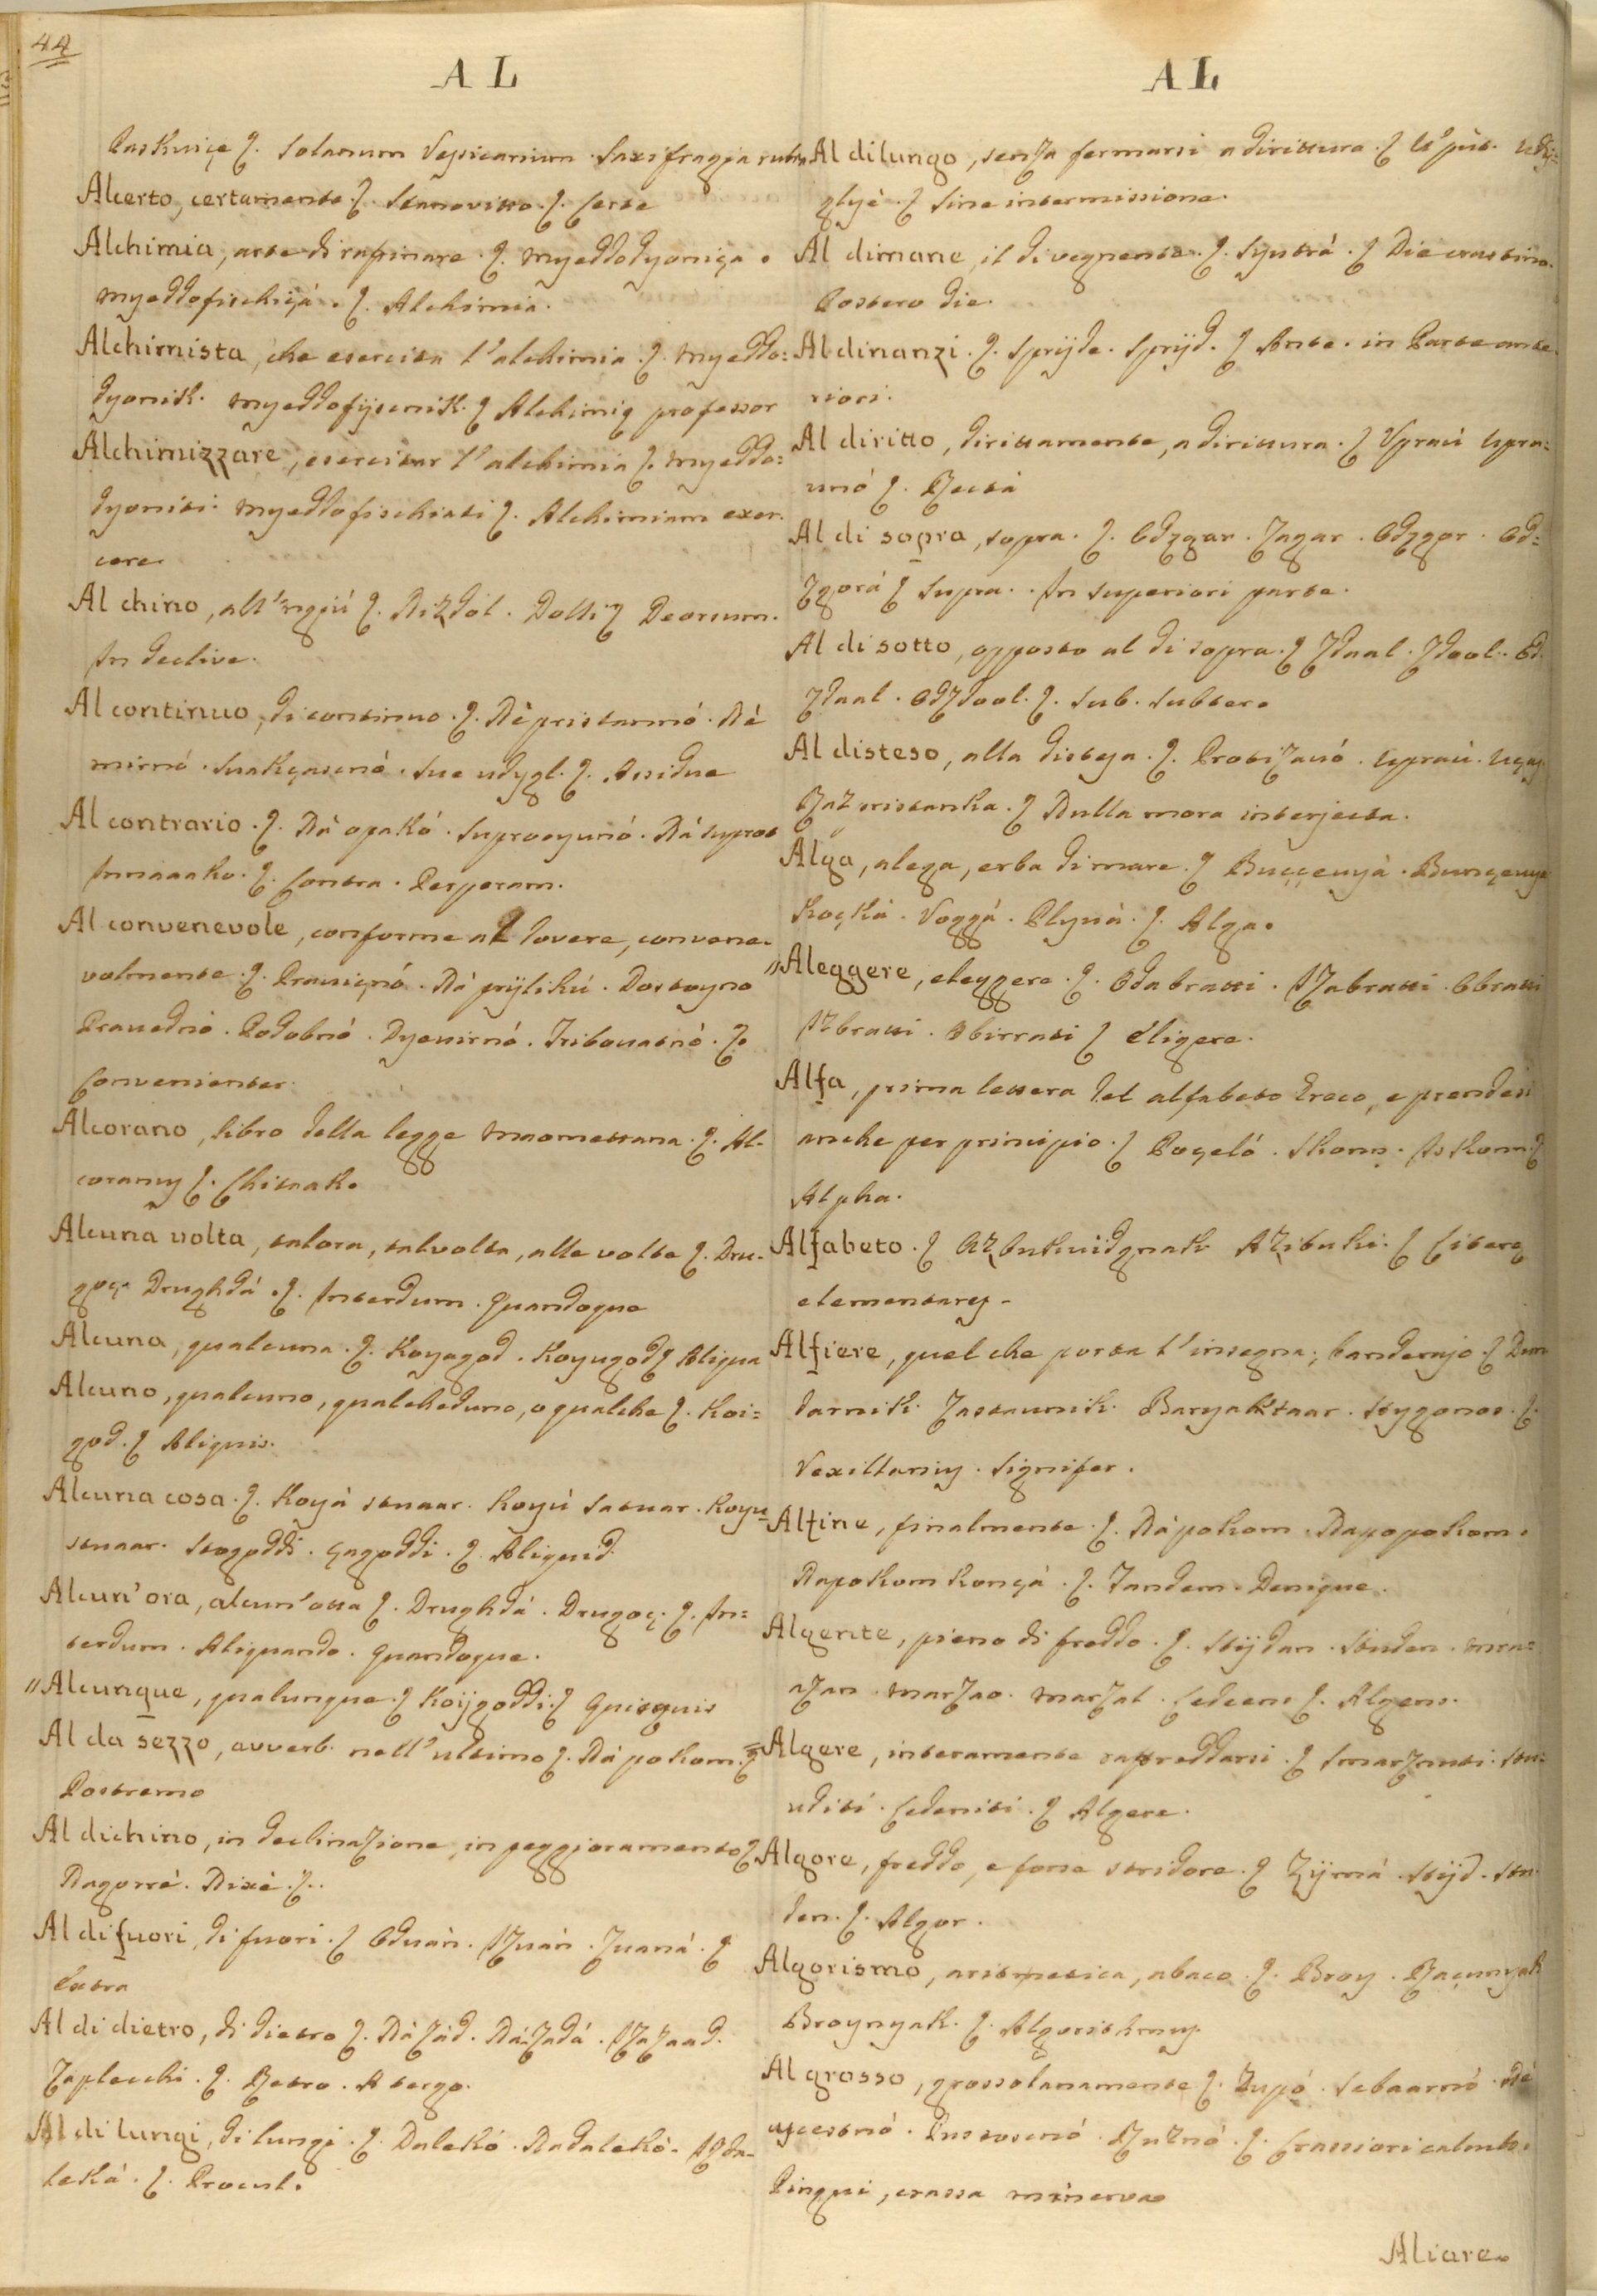 44
AL
Paskviçe ζ. Solanum Vesicarium. Saxifragia rubra
Alcerto, certamente ζ. Stanovitto. ζ. Certe
Alchimia, arte di rafinare. ζ. Myeddodyoniça.
myeddofischiçá. ζ. Alchimia.
Alchimista, che esercita l'alchimia. ζ. Myeddo=
dyonik. myeddofysenik. ζ Alchimię professor
Alchimizzare, esercitar l'alchimia ζ. Myeddo=
dyoniti. myeddofischiati ζ. Alchimiam exer.
cere.
Al chino, all'ingiú ζ. Nizdol. Dolli ζ Deorsum.
In declive.
Al continuo, di continuo. ζ. Nèpristannó. Nè
mirnó. Svakçasenó. Sve udygl. ζ. Assidue
Al contrario. ζ. Ná opakó. Suprotyunó. Ná suprot
Innaaako. ζ. Contra. Perperam.
Al convenevole, conforme al dovere, convene.
volmente. ζ. Praviçnó. Ná prÿlikú. Dostoyno
Pravednó. Podobnó. Dyevirnó. Tribovatnó. ζ.
Convenienter.
Alcorano, libro della legge Maomettana. ζ. Al.
corany ζ. Chitaak.
Alcuna volta, talora, talvolta, alle volte ζ. Dru-
goç. Drughdá. ζ. Interdum. Quandoque
Alcuna, qualcuna. ζ. Koyagod. Koyugod ζ Aliqua
Alcuno, qualcuno, qualcheduno, o qualche ζ. Koi=
god. ζ Aliquis.
Alcuna cosa. ζ. Koyá stvaar. Koyú satvar. Koyu
stvaar. Stogoddi. çagoddi. ζ. Aliquid.
Alcun'ora, alcun'otta ζ. Drughdá. Drugoç. ζ. In=
terdum. Aliquando. Quandoque.
" Alcunque, qualunque. ζ Koÿgoddi. ζ Quisquis
Al da sezzo, avverb. nell'ultimo ζ. Ná pokom. ζ
Postremo
Al dichino, in declinazione, in peggioramento ζ.
Nagorré. Nixè. ζ..
Al difuori, di fuori. ζ Odván. Izván. Zvaná. ζ
Extra
Al di dietro, di dietro ζ. Ná zád. Ná zadá. Iza zaad.
Zaplecchi. ζ. Retro. A tergo.
Al di lungi, di lungi. ζ. Dalekó. Nadalekó. Izda-
leká. ζ. Procul.
AL
Al dilungo, senza fermarsi a dirittura. ζ U'püt. udÿ=
glyè. ζ Sine intermissione.
Al dimane, il di vegnente. ζ. Syutrá. ζ Die crastino.
Postero die.
Al dinanzi. ζ. Sprÿde. Sprÿd. ζ Ante. in Parte ante.
riori.
Al diritto, dirittamente, a dirittura. ζ Upraú upra=
vnó ζ. Rectá
Al di sopra, sopra. ζ. Odzgar. Zagar. Odzgor. Od=
zgorá ζ Supra. In superiori parte.
Al di sotto, opposto al di sopra. ζ Zdaal. Zdool. Od.
zdaal. Odzdool. ζ. Sub. Subter.
Al disteso, alla distesa. ζ. Protizavó. upraú.
Raz pristanka. ζ Nulla mora interjecta.
Alga, alega, erba di mare. ζ Buççenyá. Burnçenye
Koçká. Voggá. Plyná. ζ. Alga.
" Aleggere, eleggere. ζ. Odabratti. Izabratti. Obratti
Izbratti. Obirrati ζ Eligere.
Alfa, prima lettera del alfabeto Greco, e prendesi
anche per principio. ζ Poçeló. Skom. Iskom ζ
Alpha.
Alfabeto. ζ Azbukvidgnak Azibuki. ζ Literę
elementares.
Alfiere, quel che porta l'insegna, banderajo ζ Dan
darnik. Zastavnik. Baryaktaar. Stygonos. ζ.
Vexillariy. Signifer.
Alfine, finalmente. ζ. Nápokom. Napopokom.
Napokom konçá. ζ. Tandem. Denique.
Algente, pieno di freddo. ζ. Stÿdan. Studen. mra=
azan. marzao. marzal. Ledeen ζ. Algens.
Algere, interamente raffreddarsi. ζ Smarznuti. Stu=
uditi. Ledeniti. ζ Algere.
Algore, freddo, e forse stridore. ζ Zÿmá. Stÿd. Stu.
den. ζ. Algor.
Algorismo, aritmetica, abaco. ζ. Broy. Raçunyak
Broynyak. ζ. Algorithmy.
Al grosso, grossolanamente ζ. Zupó. Sebaarnó. Né
uyestnó. Pustosenó. Ruznó. ζ. Crassiori calculo.
Pingui, crassa minerva.
Aliare.